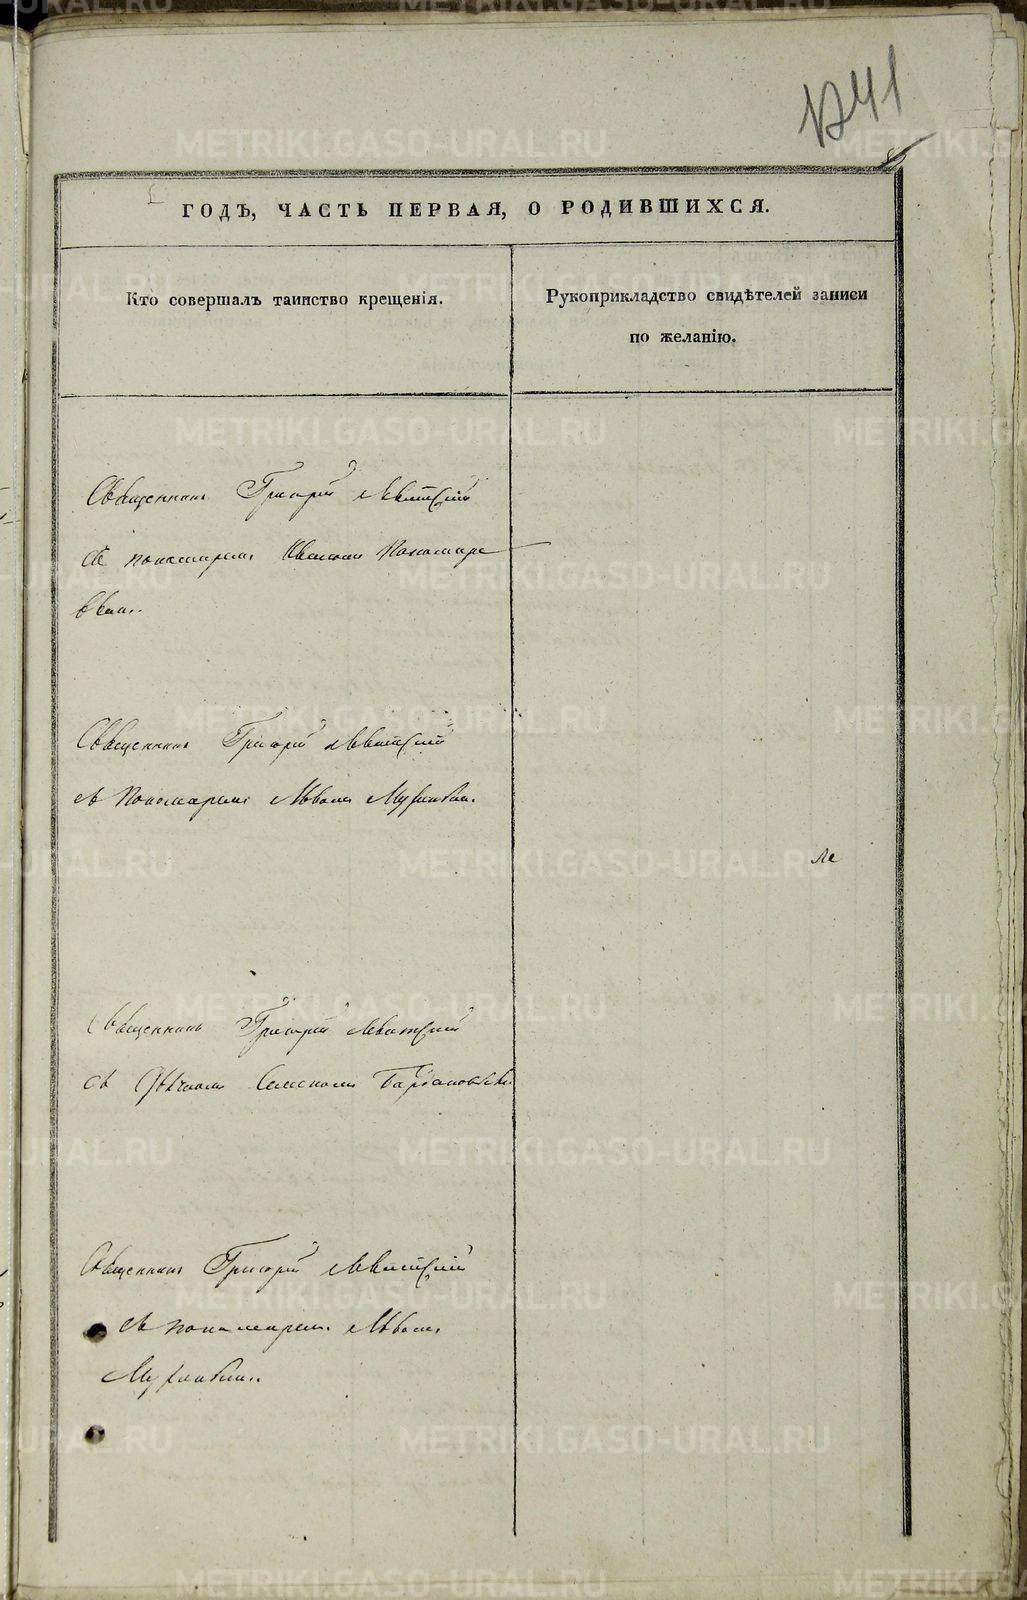 1241
ГОДЪ, ЧАСТЬ ПЕРВАЯ, О РОДИВШИХСЯ.
Кто совершалъ таинство крещенія.
Рукоприкладство свидѣтелей записи
по желанію.
Священникъ Григорій Левитскій
съ пономаремъ Пономаре
вымъ.
Священникъ Григорій Левитскій
съ Пономаремъ Львомъ
Священникъ Григорій Левитскій
съ Дьячкомъ Семеномъ
Священникъ Григорій Левитскій
съ пономаремъ Львомъ
METRIKI.GASO-URAL.RU